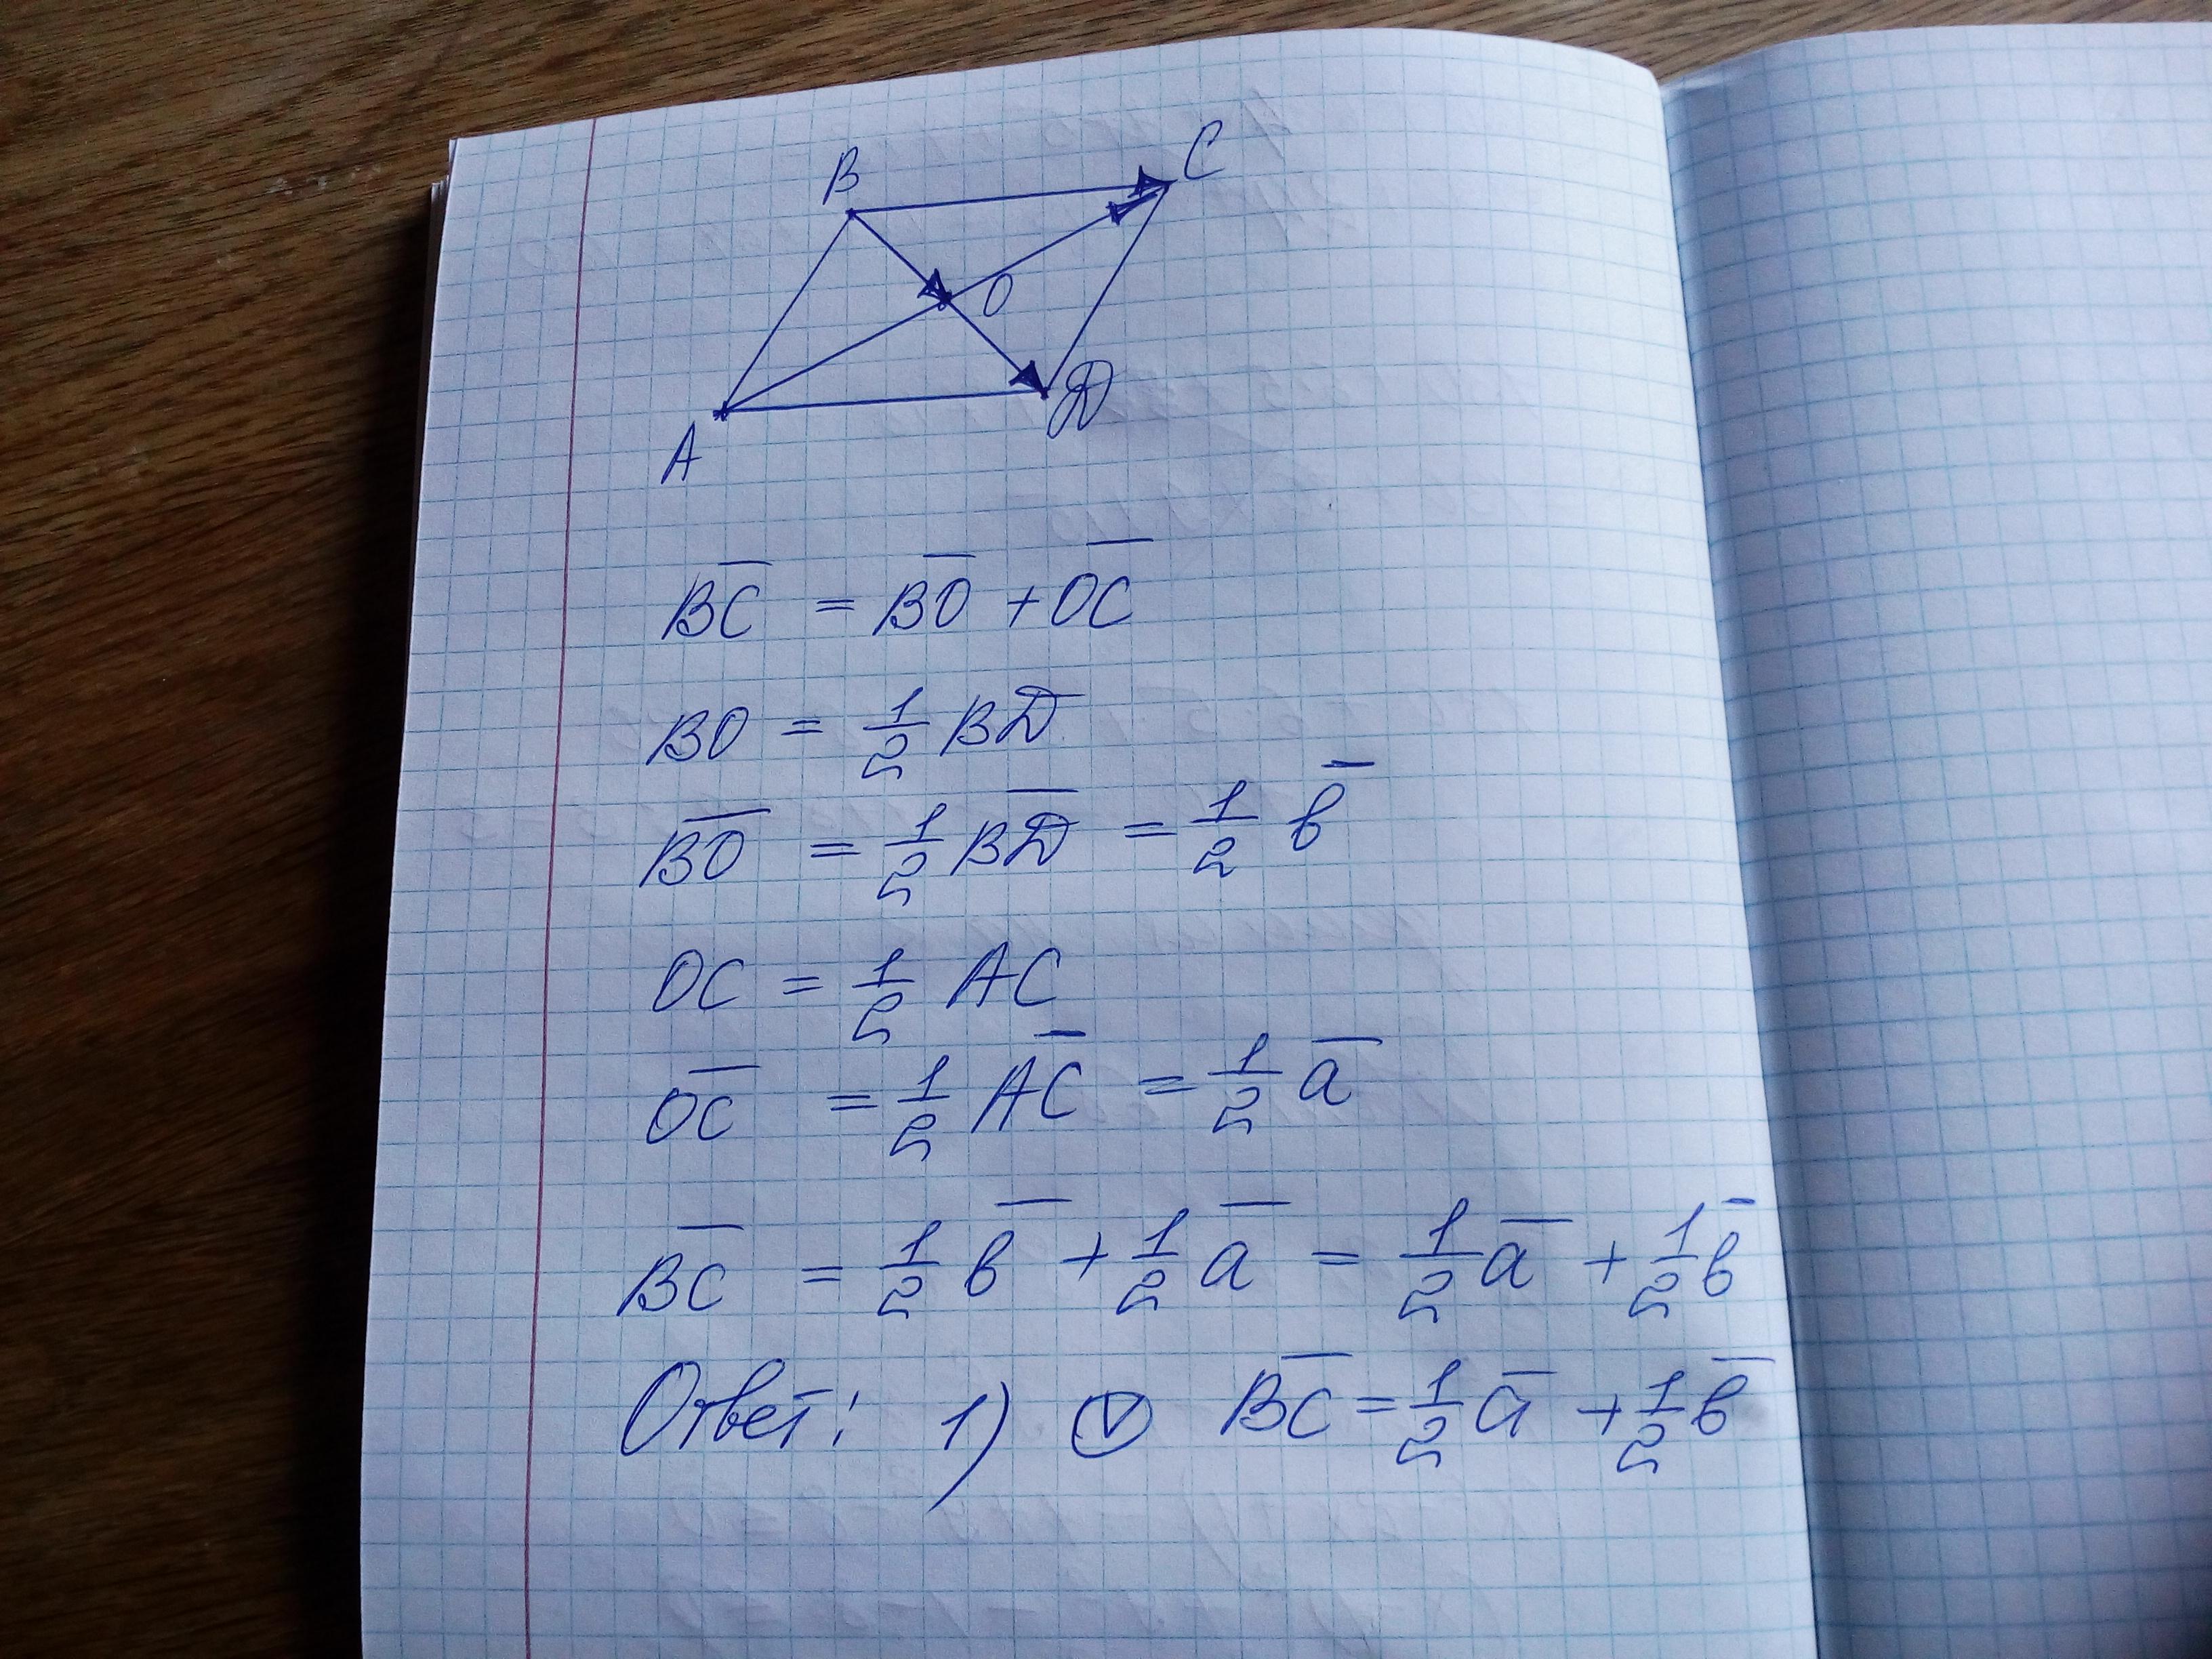 B C
O
A D
B̅C̅ = B̅O̅ + O̅C̅
BO = 1/2 BD
B̅O̅ = 1/2 B̅D̅ = 1/2 b̅
OC = 1/2 AC
O̅C̅ = 1/2 A̅C̅ = 1/2 a̅
B̅C̅ = 1/2 b̅ + 1/2 a̅ = 1/2 a̅ + 1/2 b̅
Ответ: 1) V B̅C̅ = 1/2 a̅ + 1/2 b̅